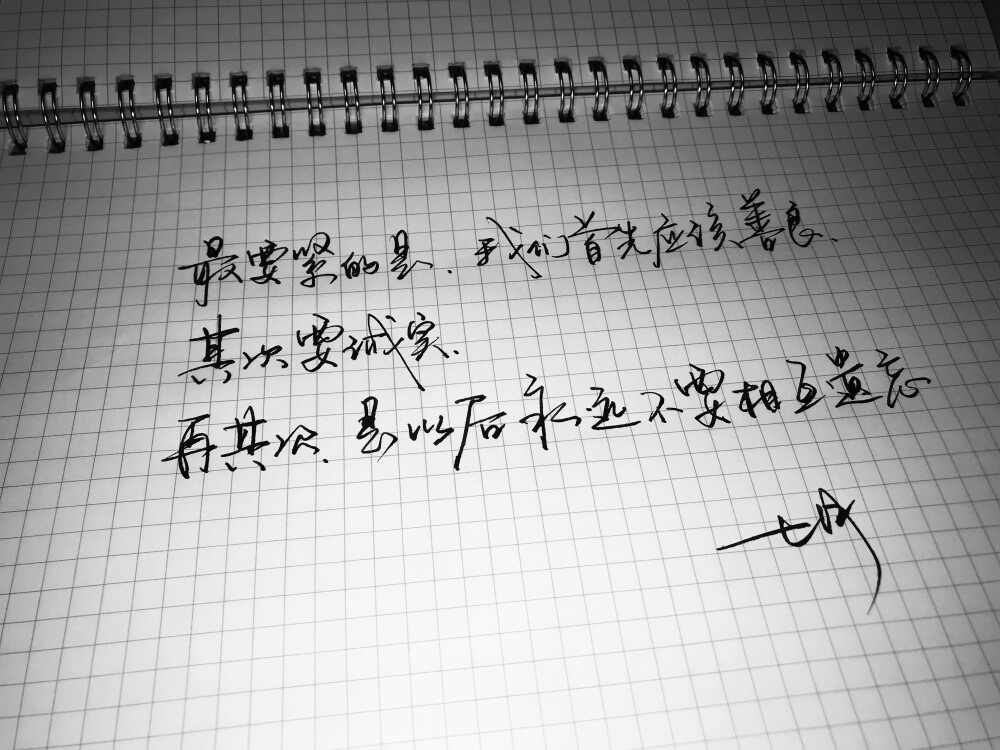 最要紧的是、我们首先应该善良、
其次要诚实、
再其次、是以后永远不要相互遗忘